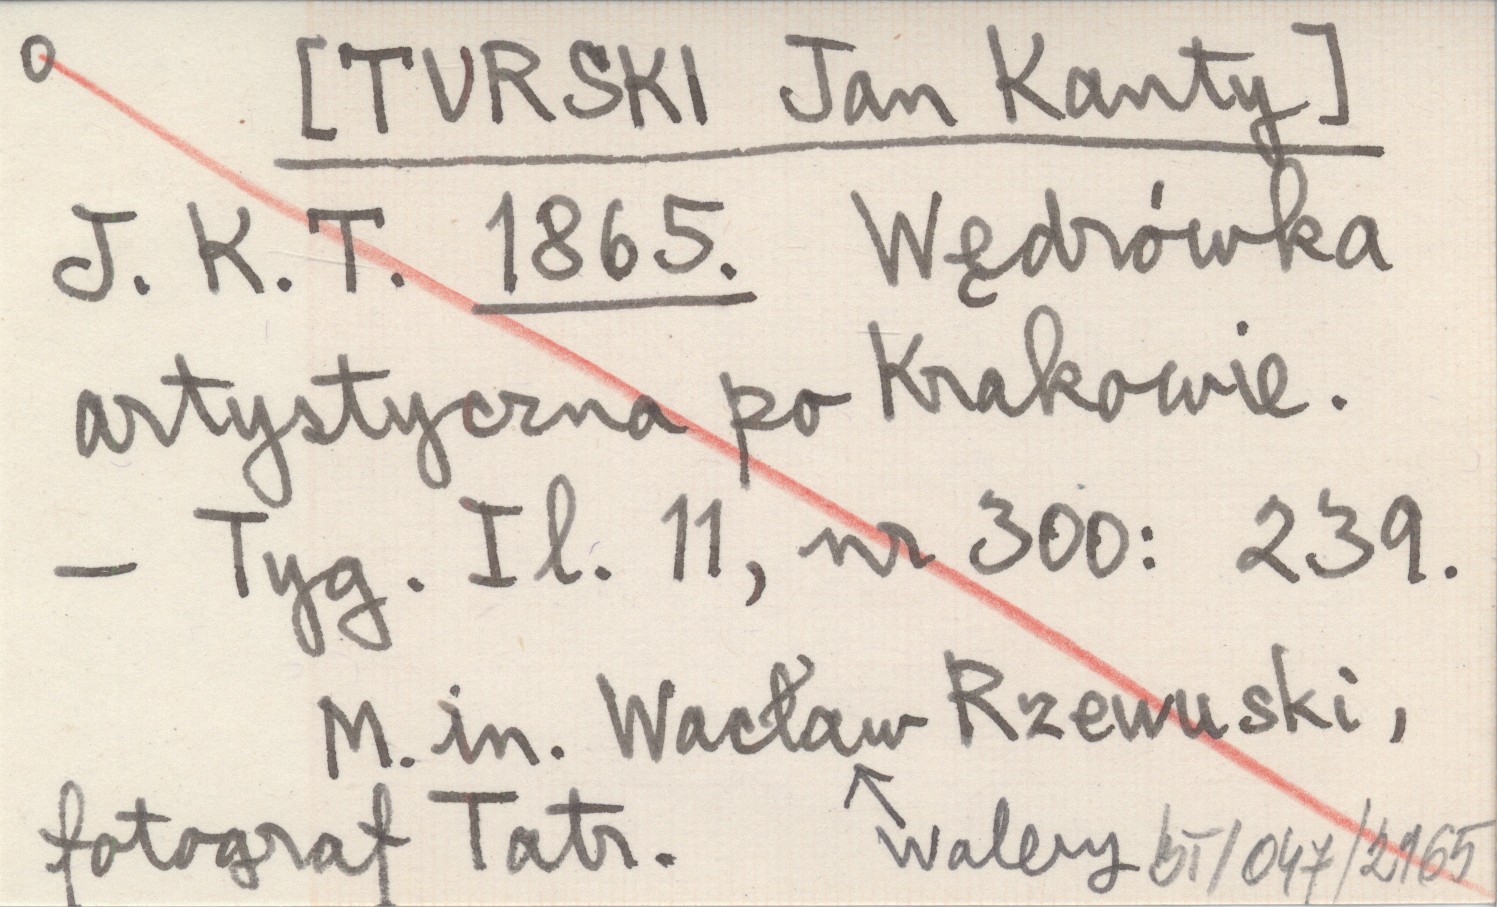 O
[TURSKI Jan Kanty]
J. K. T. 1865. Wędrówka
artystyczna po Krakowie.
– Tyg. Il. 11, nr 300: 239.
M. in. Wacław Rzewuski,
fotograf Tatr. ↖ Walery
/047/2165